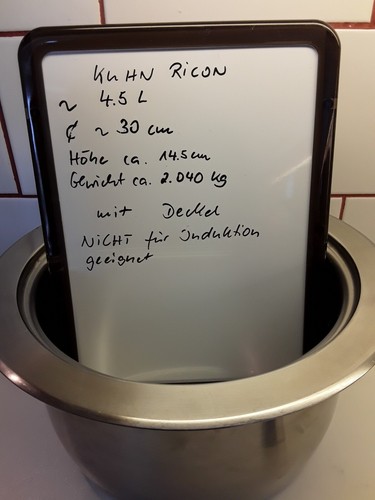 KUHN RICON
~ 4.5 L
¢ ~ 30 cm
Höhe ca. 14.5cm
Gewicht ca. 2.040 kg
mit Deckel
NICHT für Induktion
geeignet